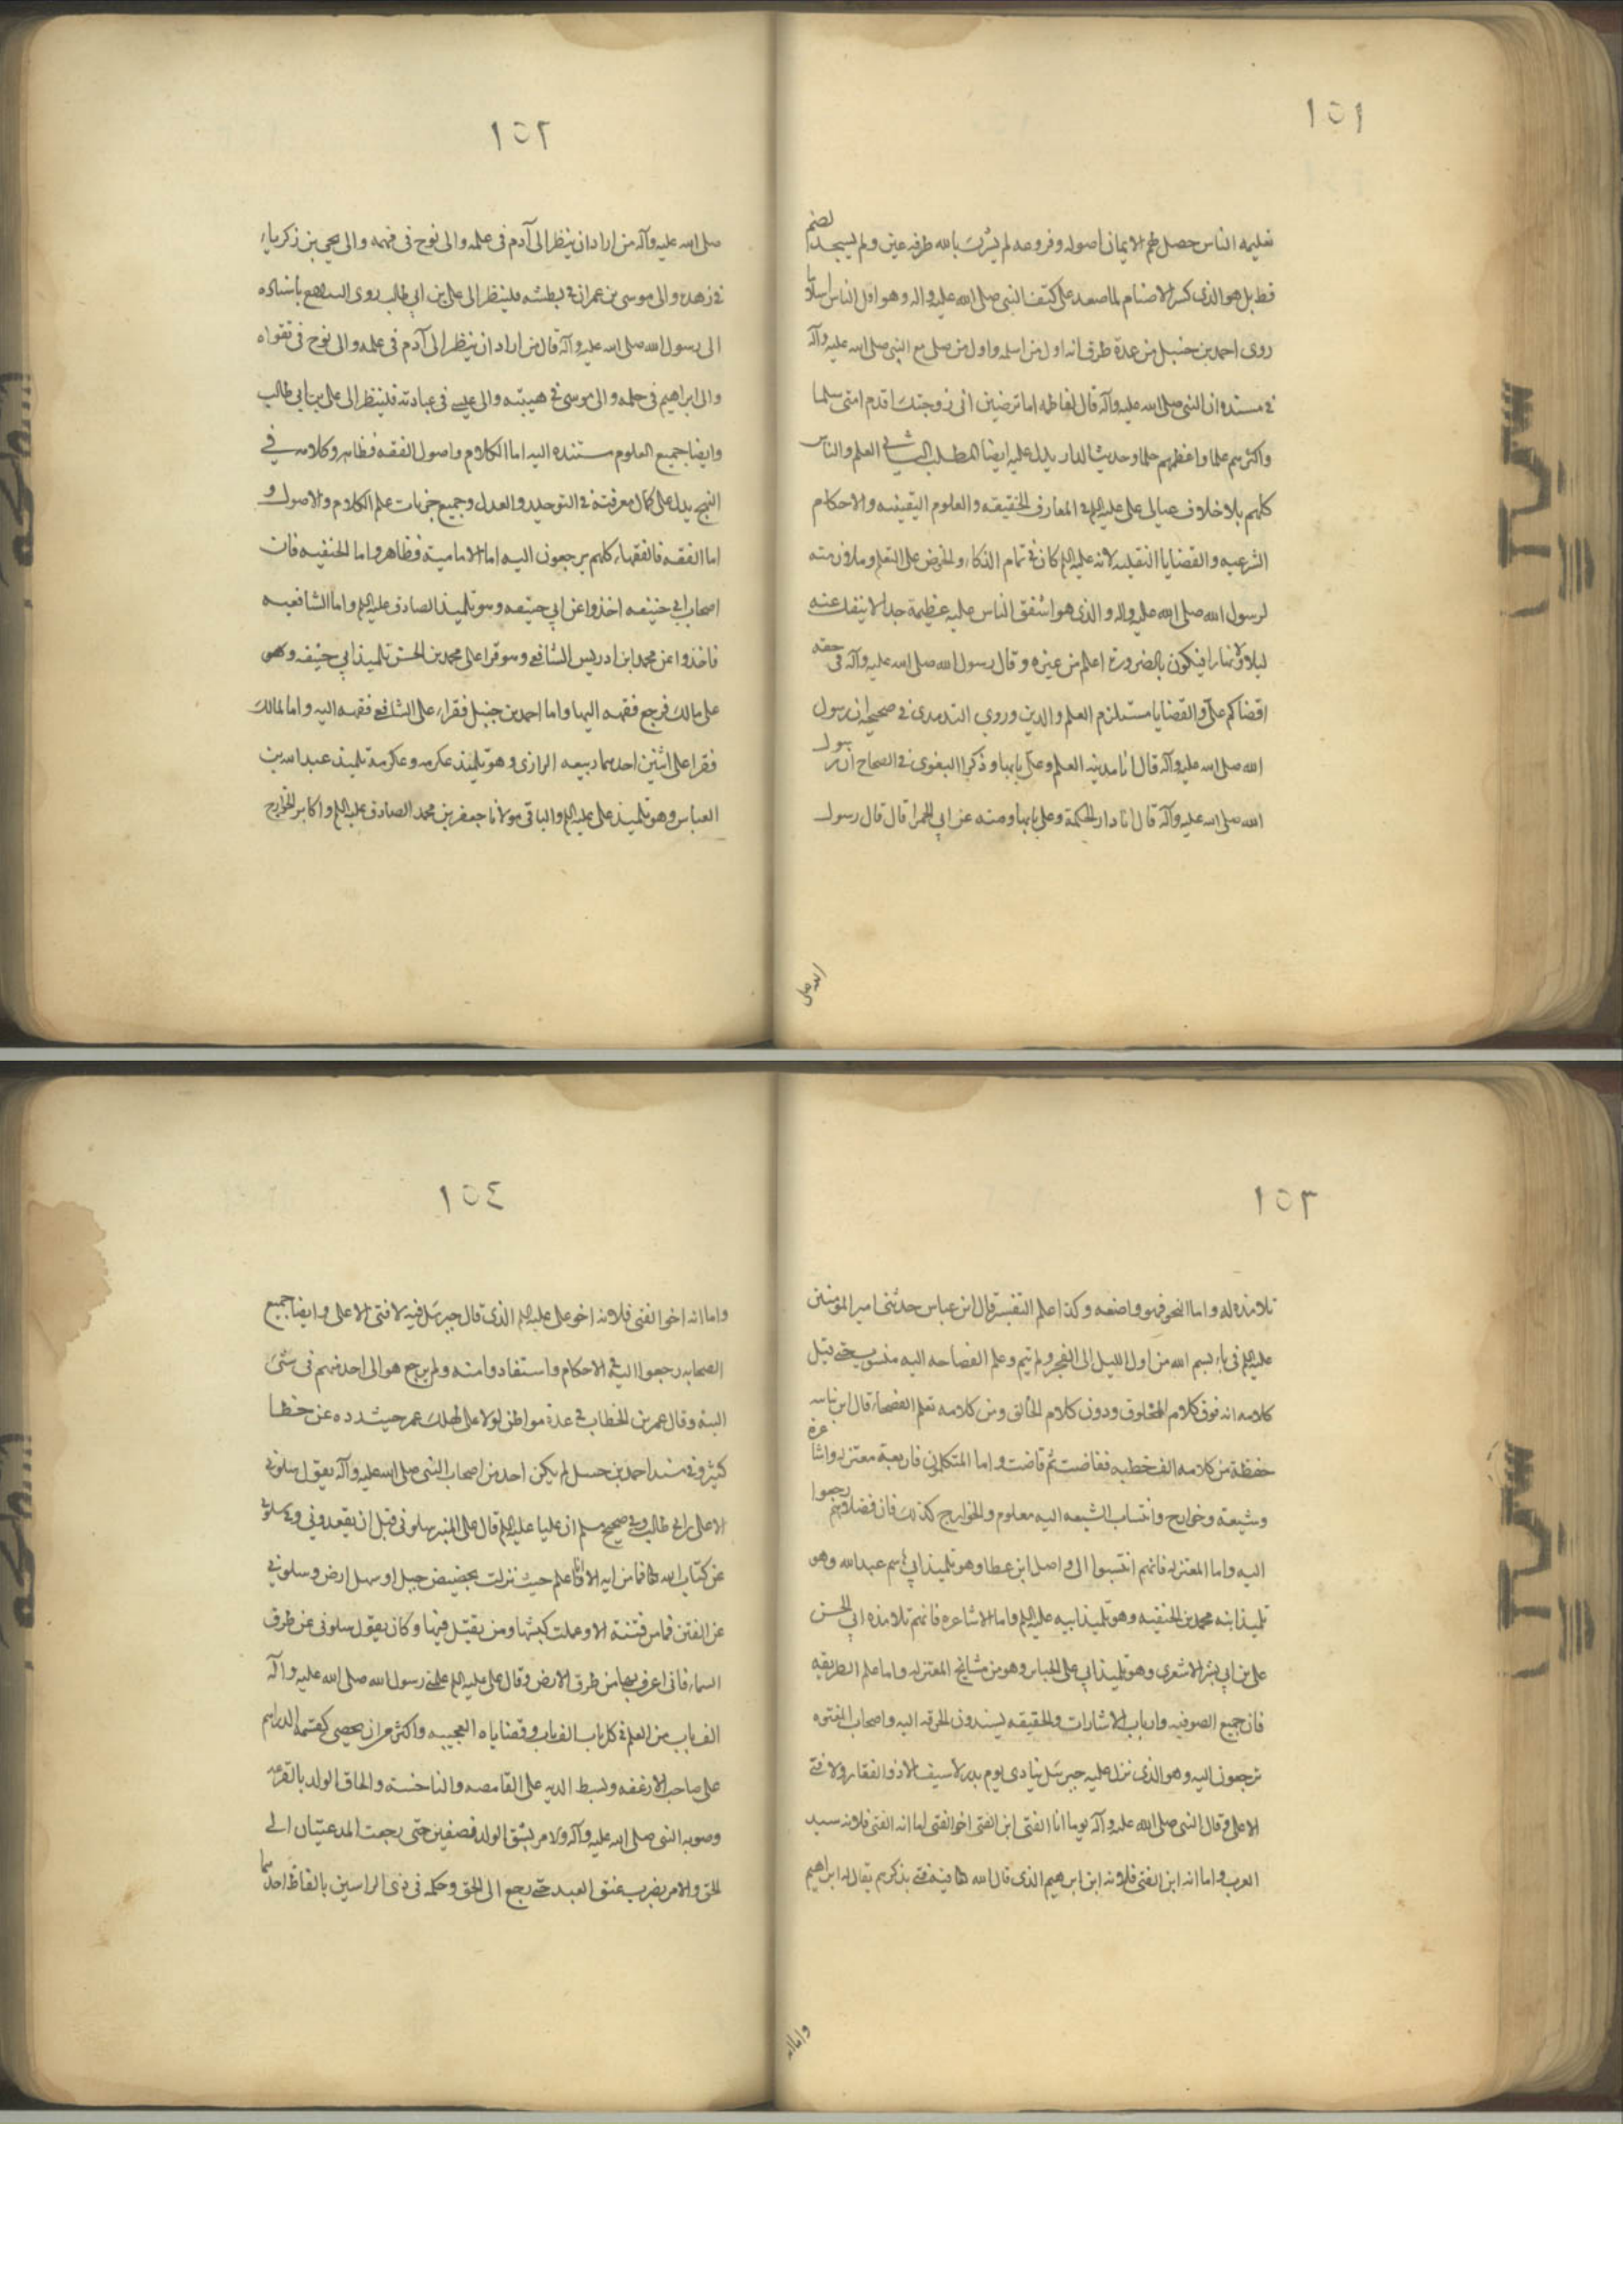 ١٥١
تعليمه الناس حصل لهم الايمان اصوله وفروعه لم يشرك بالله طرفه عين ولم يسجد لصنم
قط بل هو الذى كسر الاصنام لما صعد على كتف النبى صلى الله عليه واله وهو اول الناس اسلاما
روى احمد بن حنبل من عدة طرق انه اول من اسلم واول من صلى مع النبى صلى الله عليه وآله
فى مسنده ان النبى صلى الله عليه وآله قال لفاطمه اما ترضين انى زوجتك اقدم امتى سلما
واكثرهم علما واعظمهم حلما وحديث الدار يدل عليه ايضا المطلب الثانى العلم والناس
كلهم بلا خلاف عيال على على عليه السلم فى المعارف الحقيقه والعلوم اليقينيه والاحكام
الشرعيه والقضايا النقليه لانه عليه السلم كان فى تمام الذكاء والحرص على التعلم وملازمته
لرسول الله صلى الله عليه واله والذى هو اشفق الناس عليه عظيمة جدا لا ينفك عنه
ليلا ولا نهارا فيكون بالضرورة اعلم من غيره وقال رسول الله صلى الله عليه وآله فى حقه
اقضاكم على والقضايا مستلزم العلم والدين وروى الترمدى فى صحيحه ان رسول
الله صلى الله عليه وآله قال انا مدينه العلم وعلى بابها وذكر البغوى فى الصحاح ان رسول
الله صلى الله عليه وآله قال انا دار الحكمة وعلى بابها ومنه عن ابى الحمرا قال قال رسول
الله صلى
١٥٢
صلى الله عليه وآله من اراد ان ينظر الى آدم فى علمه والى نوح فى فهمه والى يحيى بن زكرياء
فى زهده والى موسى بن عمران فى بطشه فلينظر الى على بن ابى طالب روى البيهقى باسناده
الى رسول الله صلى الله عليه وآله قال من اراد ان ينظر الى آدم فى علمه والى نوح فى تقواه
والى ابراهيم فى حلمه والى موسى فى هيبته والى عيسى فى عبادته فلينظر الى على بن ابى طالب
وايضا جميع العلوم مستنده اليه اما الكلام واصول الفقه فظاهر وكلامه فى
النهج يدل على كمال معرفته فى التوحيد والعدل وجميع جزيات علم الكلام والاصول و
اما الفقه فالفقهاء كلهم يرجعون اليه اما الاماميته فظاهر واما الحنفيه فان
اصحاب ابى حنيفه اخذوا عن ابى حنيفه وهو تلميذ الصادق عليه السلم واما الشافعيه
فاخذوا عن محمد ابن ادريس الشافعى وهو قرا على محمد بن الحسن تلميذ ابى حنيفه وهى
على مالك فرجع فقهه اليها واما احمد بن حنبل فقراء على الشافعى فقهه اليه واما لمالك
فقرا على اثنين احدهما ربيعه الرازى وهو تلميذ عكرمه وعكرمة تلميذ عبد الله بن
العباس وهو تلميذ على عليه السلم والباقى مولانا جعفر بن محمد الصادق عليه السلم واكابر الخوارج
١٥٣
تلامذه له واما النحو فهو واضعه وكذا علم التفسير قال ابن عباس حدثنى امير المؤمنين
عليه السلم فى باء بسم الله من اول الليل الى الفجر ولم يتم وعلم الفصاحه اليه منسوب حتى قيل
كلامه انه فوق كلام المخلوق ودون كلام الخالق ومن كلامه تعلم الفصحاء قال ابن نباته
حفظة من كلامه الف خطبه ففاضت ثم فاضت واما المتكلمون فاربعة معتزله واشاعرة
وشيعة وخوارج وانتساب الشيعه اليه معلوم والخوارج كذلك فان فضلاؤهم رجعوا
اليه واما المعتزله فانهم انتسبوا الى واصل ابن عطا وهو تلميذ ابى هاسم عبدالله وهو
تلميذ ابنه محمد بن الحنفيه وهو تلميذ ابيه عليه السلم واما الاشاعره فانهم تلامذه ابى الحسن
على بن ابى بشر الاشعرى وهو تلميذ ابى على الجباى وهو من مشايخ المعتزله واما علم الطريقه
فان جميع الصوفيه وارباب الاشارات والحقيقه يسندون الخرقه اليه واصحاب الفتوه
ترجعون اليه وهو الذى نزل عليه جبرئيل ينادى يوم بدر لا سيف الا ذوالفقار ولا فتى
الا على وقال النبى صلى الله عليه وآله يوما انا الفتى ابن الفتى اخو الفتى اما انه الفتى فلانه سيد
العرب واما انه ابن الفتى فلانه ابن ابرهيم الذى قال الله تعا فيه فتى يذكرهم يقال له ابراهيم
واما انه
١٥٤
واما انه اخو الفتى فلانه اخو على عليه السلم الذى قال جبرئيل فيه لا فتى الا على وايضا جميع
الصحابه رجعوا اليه فى الاحكام واستفادوا منه ولم يرجع هو الى احد منهم فى شئ
البتة وقال عمر بن الخطاب فى عدة مواطن لولا على لهلك عمر حيث رده عن خطا
كثير وفى مسند احمد بن حسل لم يكن احد من اصحاب النبى صلى الله عليه وآله يقول سلونى
الا على بن ابى طالب وفى صحيح مسلم ان عليا عليه السلم قال على المنبر سلونى قبل ان تفقدونى وسلونى
عن كتاب الله تعا فما من ايه الا وانا اعلم حيث نزلت بحضيض جبل او سهل ارض وسلونى
عن الفتن فما من فتنة الا وعلمت كبشها ومن يقتل فيها وكان يقول سلونى عن طرق
السماء فانى اعرف بها من طرق الارض وقال على عليه السلم علمنى رسول الله صلى الله عليه وآله
الف باب من العلم فى كل باب الف باب وقضاياه العجيبه واكثر من ان يحصى كقسمة الدراهم
على صاحب الارغفه وبسط الديه على القامصه والناخسته والحاق الولد بالقرعه
وصوبه النبى صلى الله عليه وآله والامر بشق الولد نصفين حتى رجعت المدعيتان الى
الحق والامر بضرب عنق العبد حتى رجع الى الحق وحكمه فى ذى الراسين بايقاظ احدهما